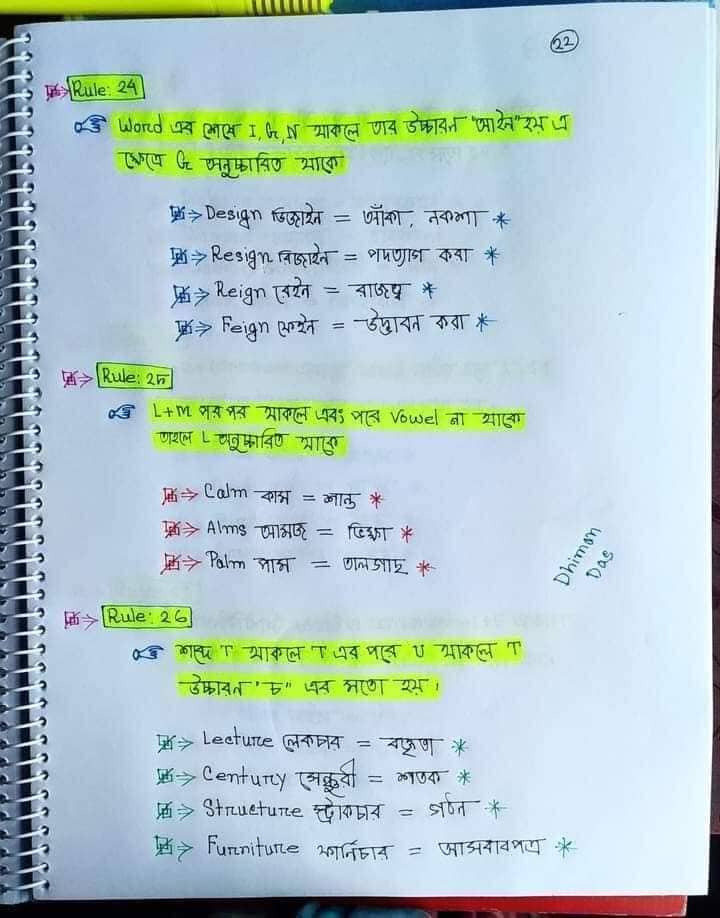 22
Rule: 24
Word এর শেষে I, G, N থাকলে তার উচ্চারন "আইন" হয় এ
ক্ষেত্রে G অনুচ্চারিত থাকে
Design ডিজাইন = আঁকা, নকশা *
Resign রিজাইন = পদত্যাগ করা *
Reign রেইন = রাজত্ব *
Feign ফেইন = উদ্ভাবন করা *
Rule: 25
L+M পর পর থাকলে এবং পরে Vowel না থাকে
তাহলে L অনুচ্চারিত থাকে
Calm কাম = শান্ত *
Alms আমজ = ভিক্ষা *
Palm পাম = তালগাছ *
Dhiman
Das
Rule: 26
শব্দে T থাকলে T এর পরে U থাকলে T
উচ্চারন 'চ" এর মতো হয়।
Lecture লেকচার = বক্তৃতা *
Century সেঞ্চুরী = শতক *
Structure স্ট্রাকচার = গঠন *
Furniture ফার্নিচার = আসবাবপত্র *